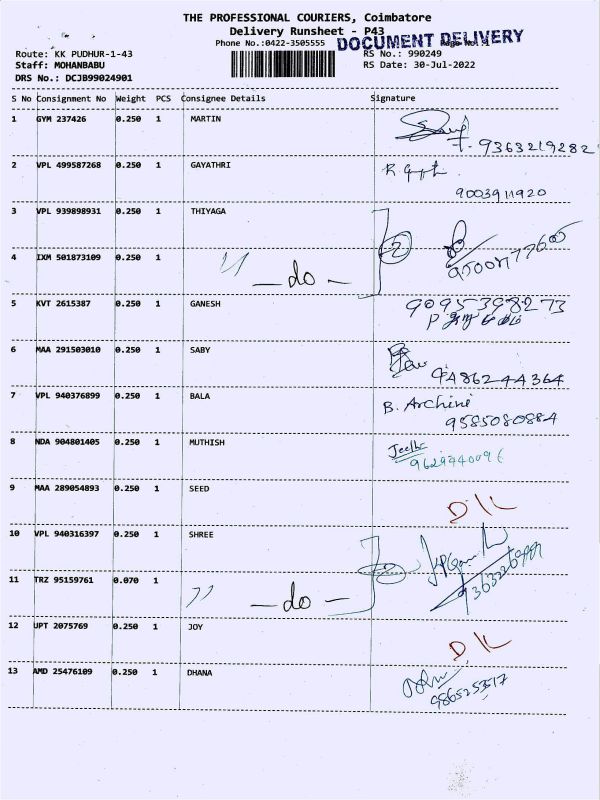 THE PROFESSIONAL COURIERS, Coimbatore
Delivery Runsheet - P43
Phone No.:0422-3505555
DOCUMENT DELIVERY
Route: KK PUDHUR-1-43
RS No.: 990249
Staff: MOHANBABU
RS Date: 30-Jul-2022
DRS No.: DCJB99024901
S No Consignment No Weight PCS Consignee Details Signature
1 GYM 237426 0.250 1 MARTIN
9363219282
2 VPL 499587268 0.250 1 GAYATHRI
9003911920
3 VPL 939898931 0.250 1 THIYAGA
2
4 IXM 501873109 0.250 1
" — do —
5 KVT 2615387 0.250 1 GANESH
9095398273
6 MAA 291503010 0.250 1 SABY
7 VPL 940376899 0.250 1 BALA
B. Archini
9585080884
8 NDA 904801405 0.250 1 MUTHISH
9 MAA 289054893 0.250 1 SEED
10 VPL 940316397 0.250 1 SHREE
2
11 TRZ 95159761 0.070 1
" — do —
12 UPT 2075769 0.250 1 JOY
13 AMD 25476109 0.250 1 DHANA